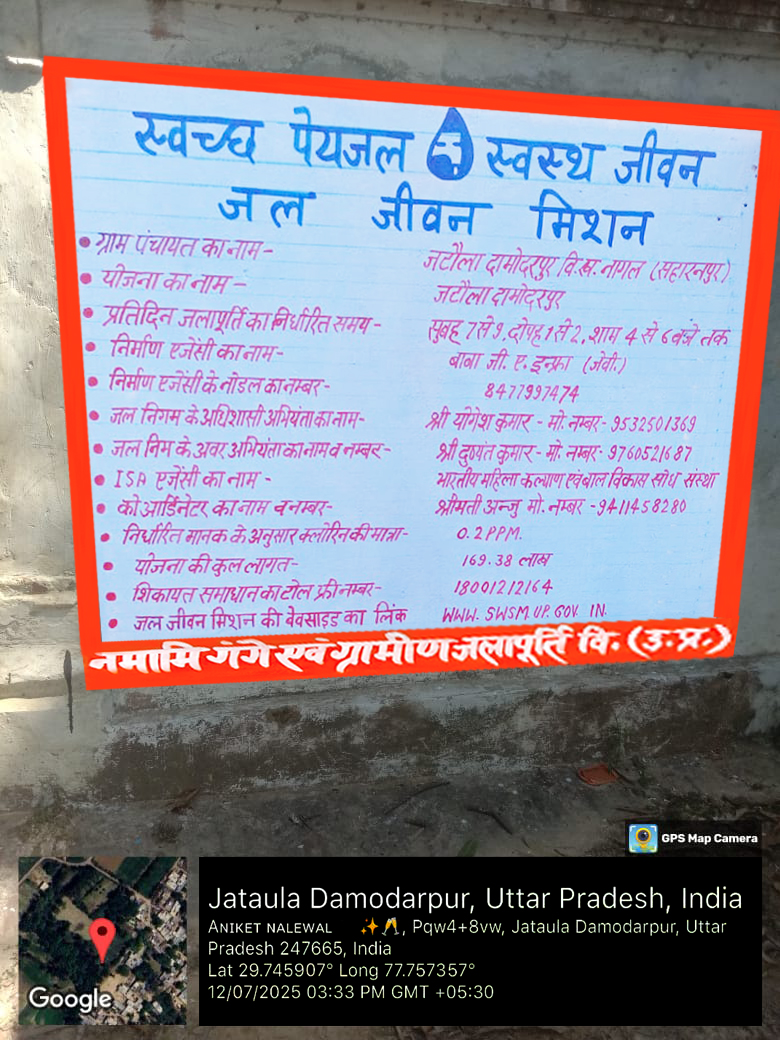 स्वच्छ पेयजल स्वस्थ जीवन
जल जीवन मिशन
• ग्राम पंचायत का नाम - जटौला दामोदरपुर वि.ख. नागल (सहारनपुर)
• योजना का नाम - जटौला दामोदरपुर
• प्रतिदिन जलापूर्ति का निर्धारित समय - सुबह 7 से 9, दोपह 1 से 2, शाम 4 से 6 बजे तक
• निर्माण एजेंसी का नाम - बाबा जी. ए. इन्फ्रा (जेवी.)
• निर्माण एजेंसी के नोडल का नम्बर - 8477997474
• जल निगम के अधिशासी अभियंता का नाम - श्री योगेश कुमार - मो. नम्बर - 9532501369
• जल निम के अवर अभियंता का नाम व नम्बर - श्री दुष्यंत कुमार - मो. नम्बर - 9760521687
• ISA एजेंसी का नाम - भारतीय महिला कल्याण एवं बाल विकास सोध संस्था
• को आर्डिनेटर का नाम व नम्बर - श्रीमती अन्जु मो. नम्बर - 9411458280
• निर्धारित मानक के अनुसार क्लोरिन की मात्रा - 0.2 PPM.
• योजना की कुल लागत - 169.38 लाख
• शिकायत समाधान का टोल फ्री नम्बर - 18001212164
• जल जीवन मिशन की वेवसाइड का लिंक WWW. SWSM. UP. GOV. IN.
नमामि गंगे एवं ग्रामीण जलापूर्ति वि. (उ.प्र.)
GPS Map Camera
Google
Jataula Damodarpur, Uttar Pradesh, India
Aniket nalewal ✨🥂, Pqw4+8vw, Jataula Damodarpur, Uttar
Pradesh 247665, India
Lat 29.745907° Long 77.757357°
12/07/2025 03:33 PM GMT +05:30